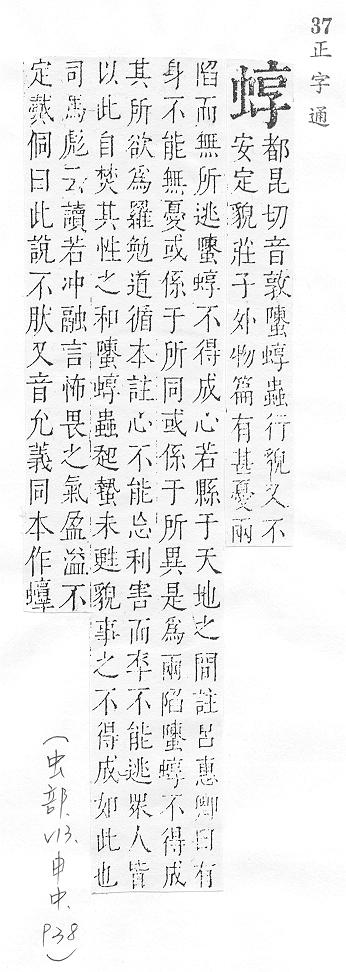 37
正字通
蜳
都昆切音敦䗥蜳蟲行貌又不
安定貌莊子外物篇有甚憂兩
陷而無所逃䗥蜳不得成心若縣于天地之間註呂惠卿曰有
身不能無憂或係于所同或係于所異是爲兩陷䗥蜳不得成
其所欲爲羅勉道循本註心不能忘利害而卒不能逃眾人皆
以此自焚其性之和䗥蜳蟲起蟄未甦貌事之不得成如此也
司馬彪云讀若冲融言怖畏之氣盈溢不
定戴侗曰此說不肰又音允義同本作
(虫部、
v13.
申中、
P38)